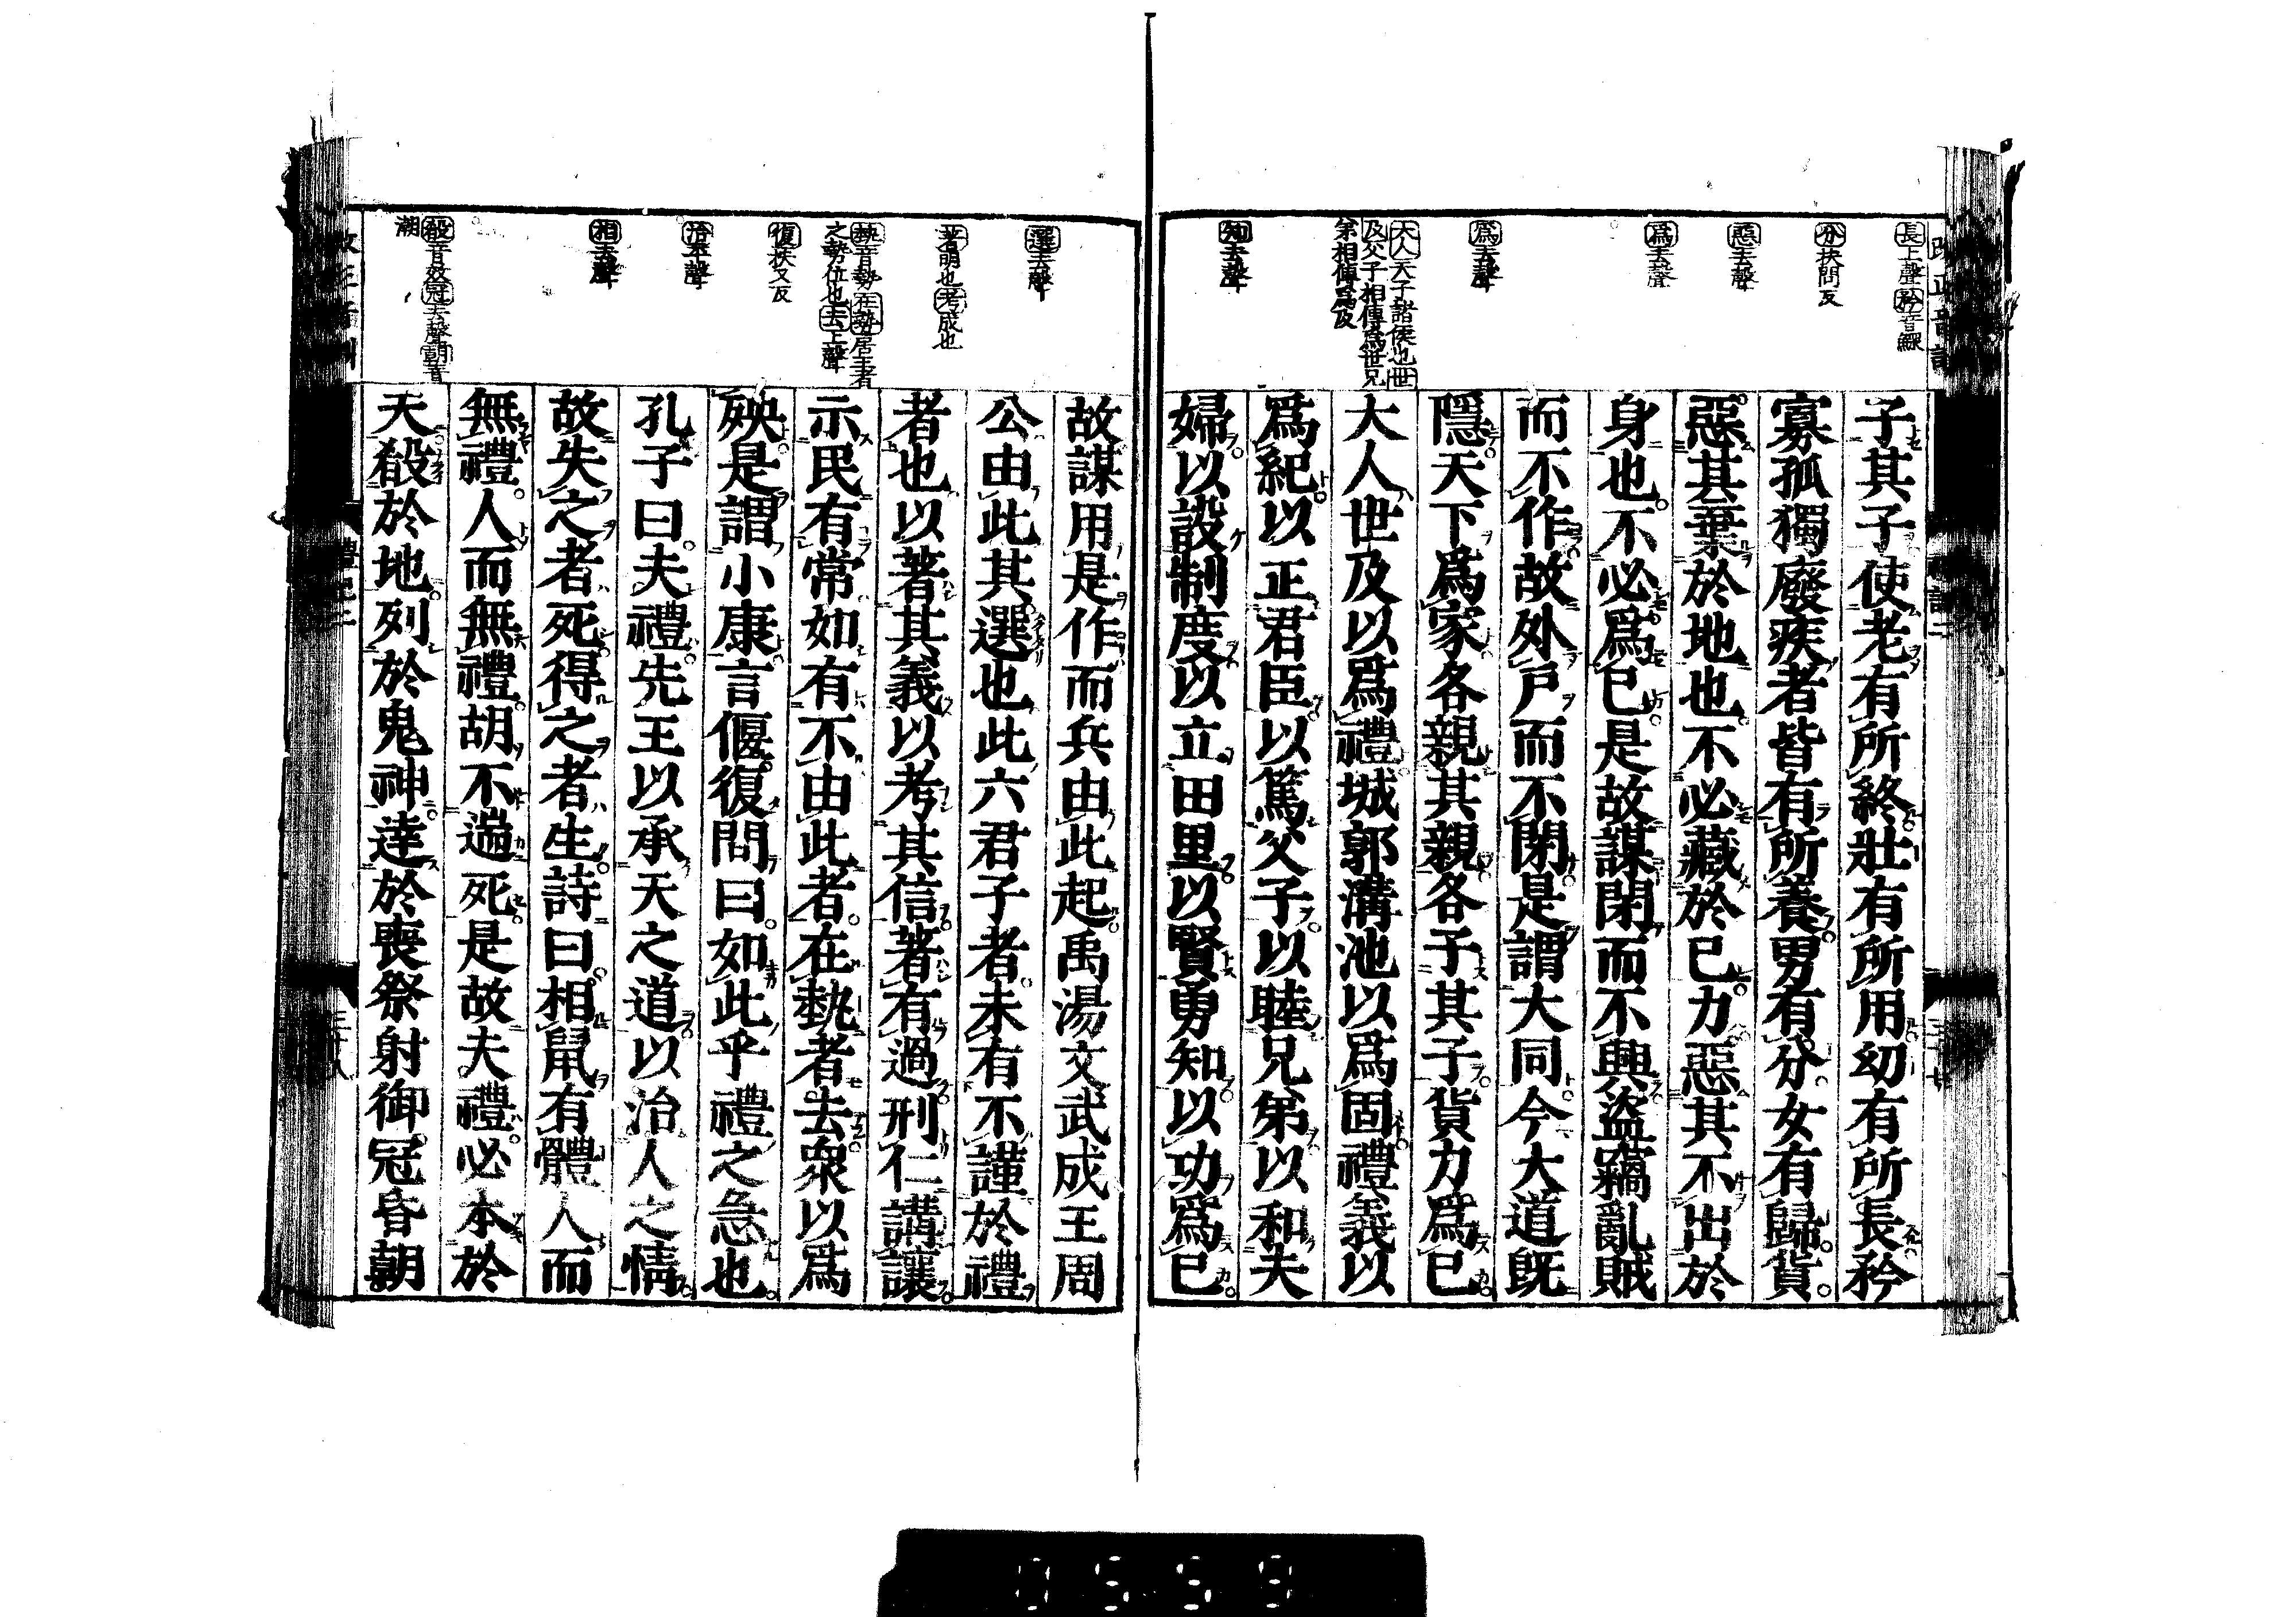 長上聲矜音鰥
分扶問反
惡去聲
爲去聲
爲去聲
大人天子諸侯也世
及父子相傳爲世兄
弟相傳爲及
知去聲
子其子使老有所終壯有所用幼有所長矜
寡孤獨廢疾者皆有所養男有分女有歸貨
惡其棄於地也不必藏於己力惡其不出於
身也不必爲己是故謀閉而不興盜竊亂賊
而不作故外戸而不閉是謂大同今大道既
隱天下爲家各親其親各子其子貨力爲己
大人世及以爲禮城郭溝池以爲固禮義以
爲紀以正君臣以篤父子以睦兄弟以和夫
婦以設制度以立田里以賢勇知以功爲己
選去聲
著明也考成也
埶音勢在埶居王者
之勢位也去上聲
復扶又反
治平聲
相去聲
殽音效冠去聲朝音
潮
故謀用是作而兵由此起禹湯文武成王周
公由此其選也此六君子者未有不謹於禮
者也以著其義以考其信著有過刑仁講讓
示民有常如有不由此者在埶者去衆以爲
殃是謂小康言偃復問曰如此乎禮之急也
孔子曰夫禮先王以承天之道以治人之情
故失之者死得之者生詩曰相鼠有體人而
無禮人而無禮胡不遄死是故夫禮必本於
天殽於地列於鬼神達於喪祭射御冠昏朝